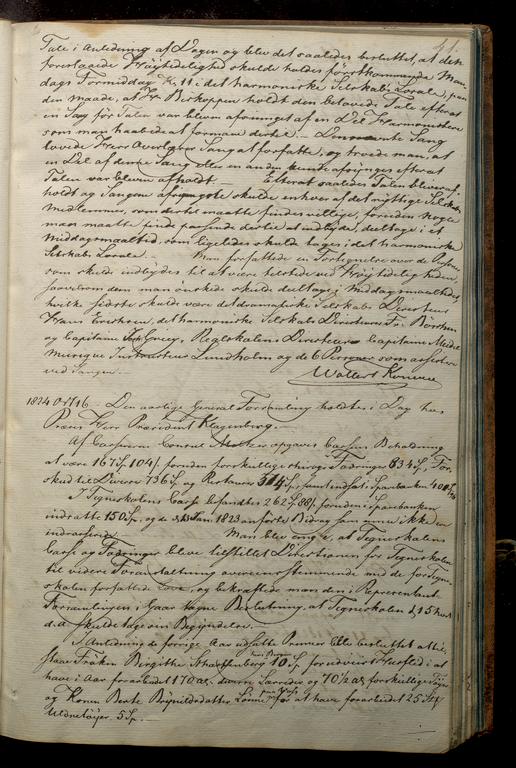 41.
Tale i Anledning af Dagen og blev det saaledes besluttet, at den
foreslaaede Høytidelighed skulde holdes førstkommende Man-
dags Formiddag Kl. 11 i det harmoniske Selskabs Locale, paa
den maade, at Hr Biskoppen holdt den belovede Tale efterat
en Sang før Talen var bleven afsunget af en Deel Harmonister
som man haabede at formaae dertil. — Sang
lovede Herr Overlærer Sang at forfatte, og troede man, at
en Deel af denne Sang eller en anden kunde afsynges efterat
Talen var bleven afholdt. — Efterat saaledes Talen blev af-
holdt og Sangene afsjungne skulde enhver af det nyttige Selskabs
Medlemmer, som dertil maatte findes villige, foruden nogle
man maatte finde passende dertil at indbyde, deeltage i et
Middagsmaaltid, som ligeledes skulde tages i det harmoniske
Selskabs Locale. — Man forfattede en Fortegnelse over de Personer
som skulde indbydes til at være tilstede ved Høytideligheden,
saavelsom dem man ønskede skulde deeltage i Middagsmaaltidet,
hvilke sidste skulde være det dramatiske Selskabs Directeur
Hans Erichsen, det harmoniske Selskabs Directeurer Fr.
og Capitaine Greeg, Realskolens Directeurer Capitaine
Musique Instructeur Lindholm og de 6 som assisterer
ved Sangen.
Wollert Konow
1824 Oct 16. — Den aarlige General Forsamling holdtes i Dag hos
Præses Herr Præsident Klagenberg. —
Af Cassereren Consul opgaves Cassens Beholdning
at være 167 Sp. 104 ß. foruden forskjellige Fordringer 834 Sp., For-
skud til Divere 736 Sp og Restancer 314 Sp, samt indsat i Sparebanken 400 Sp
I Tegneskolens Casse befandtes 262 Sp. 88 ß. foruden i Sparebanken
indsatte 150 Sp., og de Jan. 1823 anførte Bidrag som endnu ikke ere
indkomne. Man blev enig, at Tegneskolens
Casse og Fordringer bleve tilstillet Directionen for Tegneskolen
til videre Foranstaltning overeensstemmende med de for Tegne-
skolen forfattede Love, og bekræftede man den i Repræsentant
Forsamlingen i Gaar tagne Beslutning at Tegneskolen d. 15 hvert
d. A. skulde tage sin Begyndelse.
I Anledning de forrige Aar udsatte Præmier blev besluttet at til-
staa Frøken Birgithe Scharffenberg 10 Sp. for udviist Huusflid i at
have i Aar forarbeidet 170 al. diverse Lærreder og 70½ al. forskjellige Tøyer
og Konen Berte Brynildsdatter for at have forarbeidet 25 St
Uldnetøyer. 5 Sp. —